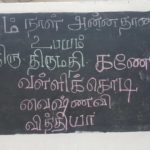 ம் நாள் அன்னதான
உபயம்
திரு திருமதி. கணே
வள்ளிக்கொடி
வைஷ்ணவி
வித்தியா